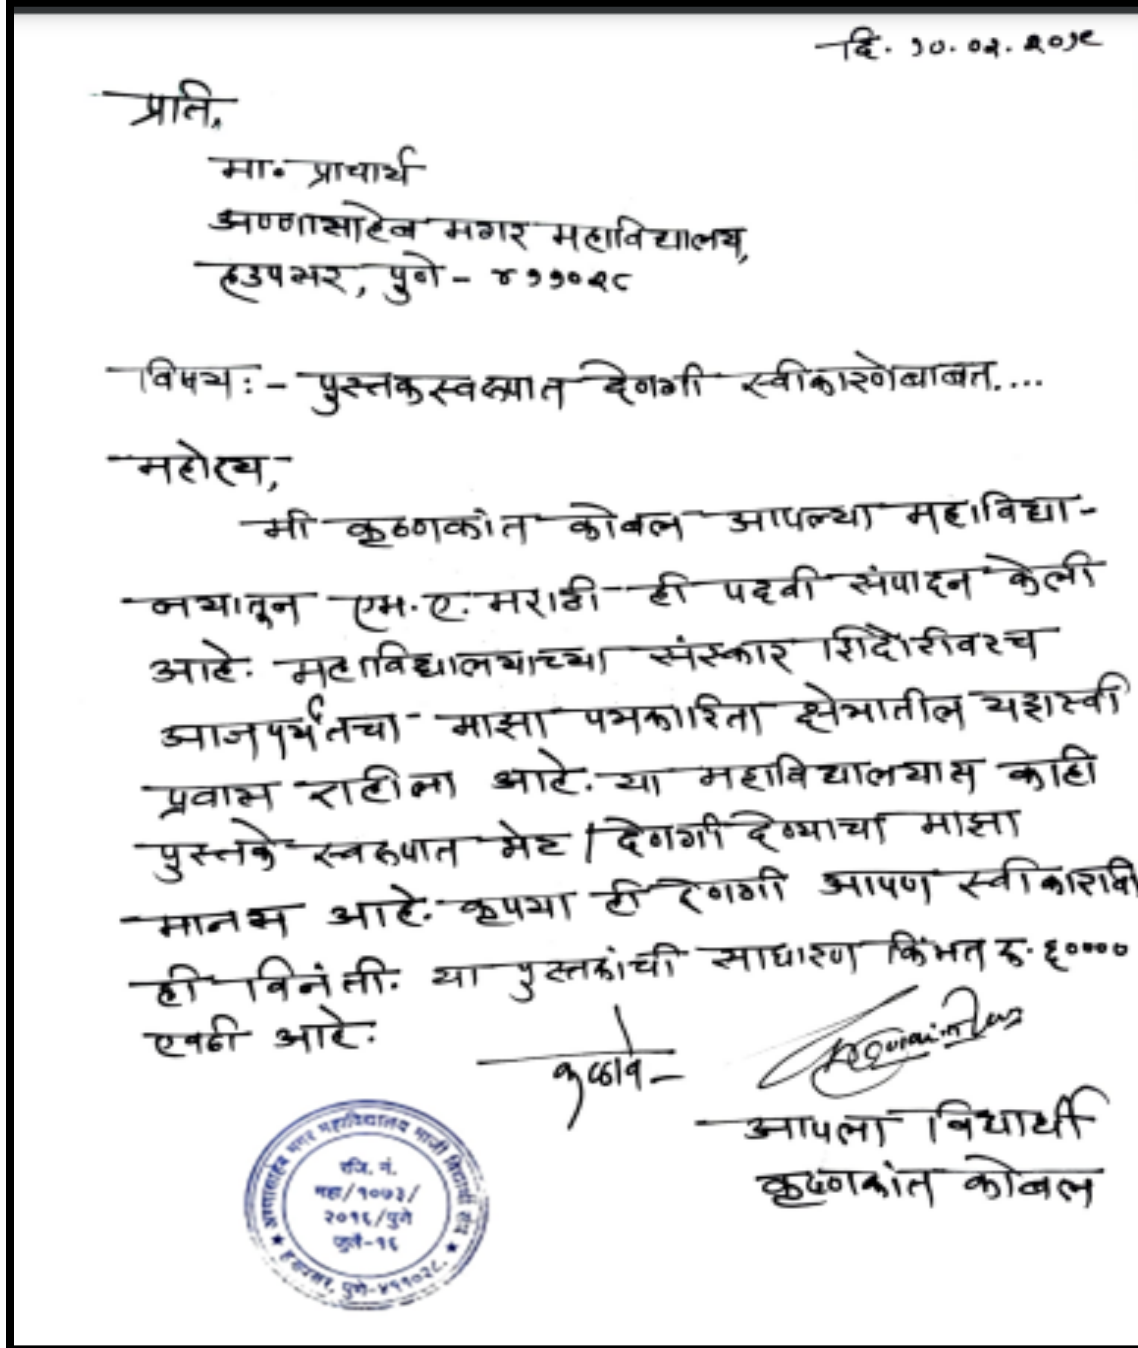 दि. १०.०२.२०१९
प्रति,
मा. प्राचार्य
अण्णासाहेब मगर महाविद्यालय,
हडपसर, पुणे - ४११०२८
विषय :- पुस्तकस्वरुपात देणगी स्वीकारणेबाबत....
महोदय,
मी कृष्णकांत कोबल आपल्या महाविद्या-
लयातून एम.ए. मराठी ही पदवी संपादन केली
आहे. महाविद्यालयाच्या संस्कार शिदोरीवरच
आजपर्यंतचा माझा पत्रकारिता क्षेत्रातील यशस्वी
प्रवास राहीला आहे. या महाविद्यालयास काही
पुस्तके स्वरुपात भेट / देणगी देण्याचा माझा
मानस आहे. कृपया ही देणगी आपण स्वीकारावी
ही विनंती. या पुस्तकांची साधारण किंमत रु. ६००००
एवढी आहे.
कळावे -
आपला विद्यार्थी
कृष्णकांत कोबल
अण्णासाहेब मगर महाविद्यालय माजी विद्यार्थी संघ
रजि. नं.
महा/१०७३/
२०१६/पुणे
जुलै-१६
★ हडपसर, पुणे-४११०२८. ★